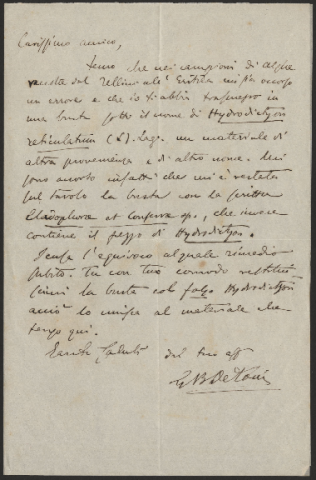 Carissimo amico,
temo che nei campioni di alghe
raccolte dal Tellini nell'Eritrea mi sia occorso
un errore e che io ti abbia trasmesso in
una busta sotto il nome di Hydrodictyon
reticulatum (L.) Lag. un materiale di
altra provenienza e di altro nome. Mi
sono accorto infatti che mi è restata
sul tavolo la busta con la scritta
Cladophora et Conferva sp., che invece
contiene il pezzo di Hydrodictyon.
Scusa l'equivoco al quale rimedio
subito. Tu con tuo comodo restitui-
scimi la busta col falso Hydrodictyon
acciò lo unisca al materiale che
tengo qui.
Tanti saluti dal tuo aff
G B De Toni